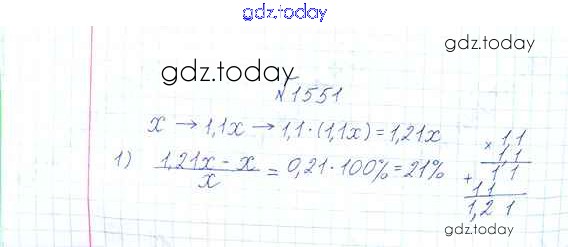 gdz.today
gdz.today
gdz.today
№1551
x → 1,1x → 1,1 · (1,1x) = 1,21x
1) (1,21x - x)/x = 0,21 · 100% = 21%
× 1,1
1,1
+ 1 1
1 1
1,2 1
gdz.today